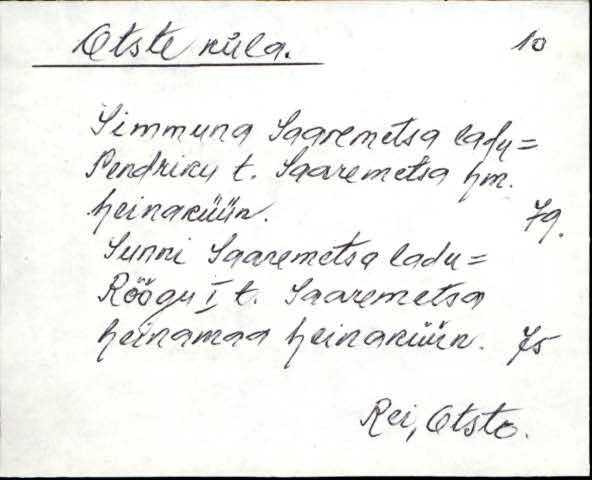 Otste küla. 10
Simmuna Saaremetsa ladu=
Pendriku t. Saaremetsa hm.
heinaküün. 79.
Sunni Saaremetsa ladu=
Röögu I t. Saaremetsa
heinamaa heinaküün. 75
Rei, Otsto.